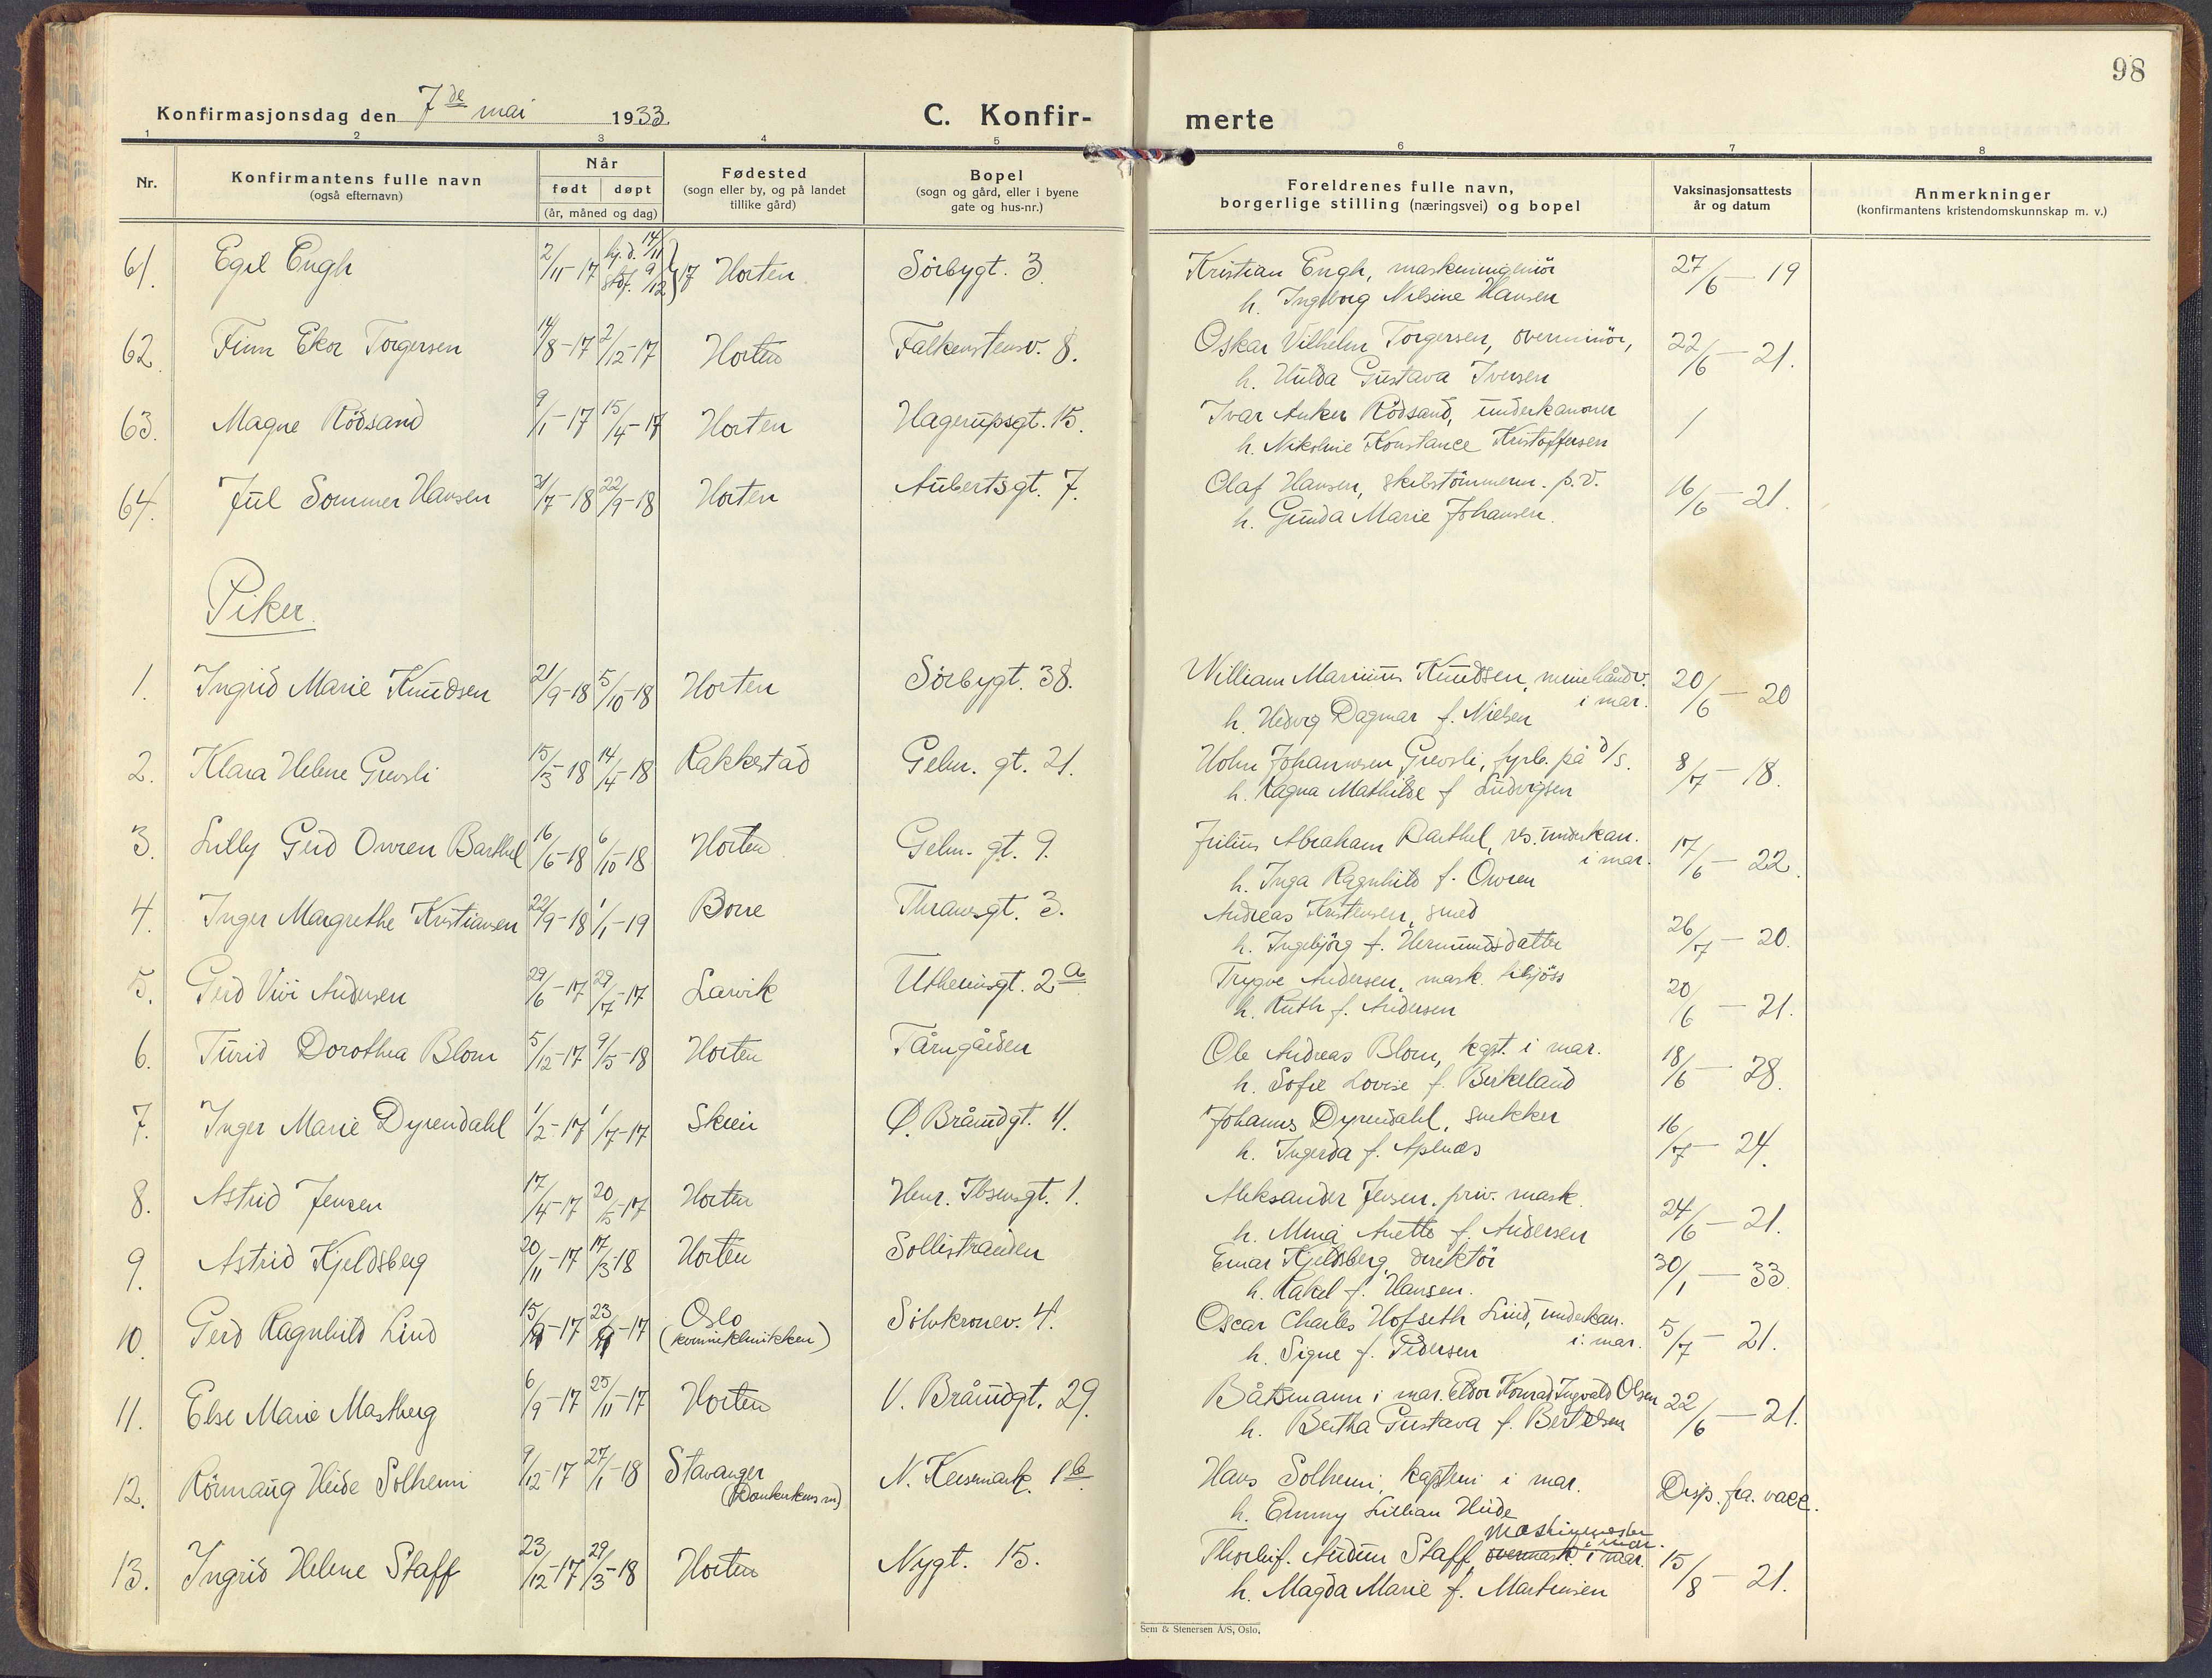 98
Konfirmasjonsdag den 7de mai 1933 C. Konfir- merte
1 2 3 4 5 6 7 8
Nr.
Konfirmantens fulle navn
(også efternavn)
Når
født døpt
(år, måned og dag)
Fødested
(sogn eller by, og på landet
tillike gård)
Bopel
(sogn og gård, eller i byene
gate og hus-nr.)
Foreldrenes fulle navn,
borgerlige stilling (næringsvei) og bopel
Vaksinasjonsattests
år og datum
Anmerkninger
(konfirmantens kristendomskunnskap m. v.)
61. Egil Engh 2/11-17 hj.d. 14/11 stdf. 9/12 }17 Horten Sörbygt. 3 Kristian Engh, maskiningeniör 27/6 - 19
h. Ingeborg Nilsine Hansen
62. Finn Ekor Torgersen 14/8-17 2/12-17 Horten Falkenstensv. 8. Oskar Vilhelm Torgersen, overminör, 22/6 - 21.
h. Hulda Gustava Iversen
63. Magne Rödsand 9/1-17 15/4-17 Horten Hagerupsgt. 15. Ivar Anker Rödsand, underkanoner /
h. Nikoline Konstance Kristoffersen
64. Jul Sommer Hansen 31/7-18 22/9-18 Horten Aubertsgt. 7. Olaf Hansen, skibstömmerm. p.v. 16/6 - 21.
h. Gunda Marie Johansen.
Piker.
1. Ingrid Marie Knudsen 21/9-18 5/10-18 Horten Sörbygt. 38. William Marinius Knudsen, minehåndv. i mar. 20/6 - 20
h. Hedvig Dagmar f. Nielsen
2. Klara Helene Grevsli 15/3-18 14/4-18 Rakkestad Gelm. gt. 21. Holm Johannesen Grevsli, fyrb. på d/s. 8/7 - 18.
h. Ragna Mathilde f Ludvigsen
3. Lilly Gerd Owren Barthel 16/6-18 6/10-18 Horten Gelm. gt. 9. Julius Abraham Barthel, rs. underkan. i mar. 17/6 - 22.
h. Inga Ragnhild f. Owren
4. Inger Margrethe Kristiansen 22/9-18 1/1-19 Borre Thranesgt. 3. Andreas Kristensen, smed 26/7 - 20.
h. Ingebjörg f. Hermundsdatter
5. Gerd Vivi Andersen 29/6-17 29/7-17 Larvik Uthemsgt. 2a Trygve Andersen, mask. 20/6 - 21.
h. Ruth f. Andersen
6. Turid Dorothea Blom 5/12-17 9/5-18 Horten Tårngården Ole Andreas Blom, kapt. i mar. 18/6 - 28.
h. Sofie Lovise f. Birkeland
7. Inger Marie Dyrendahl 1/2-17 1/7-17 Skien Ø. Bråundgt. 11. Johannes Dyrendahl, snekker 16/7 - 24.
h. Ingerda f. Apenæs
8. Astrid Jensen 17/4-17 20/5-17 Horten Henr. Ibsensgt. 1. Aleksander Jensen. priv. mask. 24/6 - 21.
h. Mina Anette f. Andersen
9. Astrid Kjeldsberg 20/11-17 17/3-18 Horten Sollistranden Einar Kjeldsberg, direktör 30/1 - 33.
h. Rakel f. Hansen.
10. Gerd Ragnhild Lind 15/9-17 23/9-17 Oslo Sölvkronev. 4. Oscar Charles Hofseth Lind, underkan. i mar. 5/7 - 21.
(kvinneklinikken) h. Signe f. Pedersen
11. Else Marie Mastberg 6/9-17 25/11-17 Horten V. Bråundgt. 29. Båtsmann i mar. Eldor Konrad Ingvald Olsen 22/6 - 21.
h. Bertha Gustava f. Bertelsen
12. Rönnaug Heide Solheim 9/12-17 27/1-18 Stavanger N. Keisemark. 1b Hans Solheim, kaptein i mar. Disp. fra. vacc.
(Domkirkens m) h. Emmy Lillian Heide
13. Ingrid Helene Staff 23/12-17 29/3-18 Horten Nygt. 15. Thorleif. Audun Staff, overmask. i mar. maskinmester i mar. 15/8 - 21.
h. Magda Marie f. Martinsen
Sem & Stenersen A/S, Oslo.